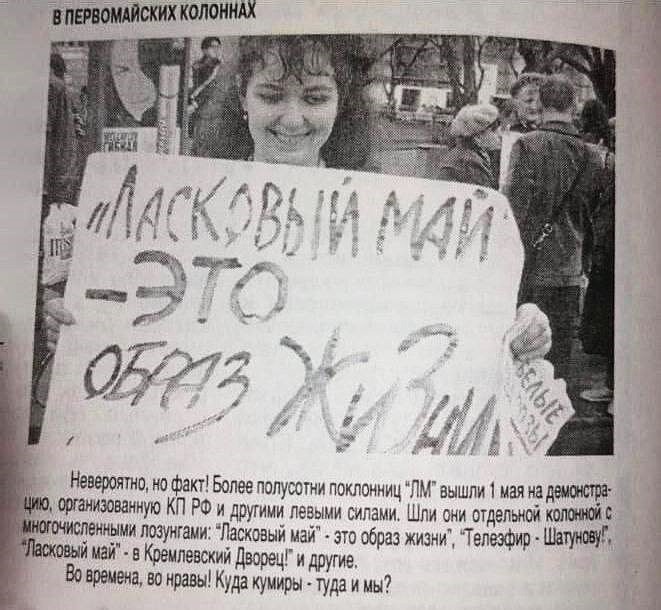 В ПЕРВОМАЙСКИХ КОЛОННАХ
„ЛАСКОВЫЙ МАЙ"
-ЭТО
ОБРАЗ ЖИЗНИ
БЕЛЫЕ
РОЗЫ
Невероятно, но факт! Более полусотни поклонниц "ЛМ" вышли 1 мая на демонстра-
цию, организованную КП РФ и другими левыми силами. Шли они отдельной колонной с
многочисленными лозунгами: "Ласковый май" - это образ жизни", "Телеэфир - Шатунову!",
"Ласковый май" - в Кремлевский Дворец!" и другие.
Во времена, во нравы! Куда кумиры - туда и мы?